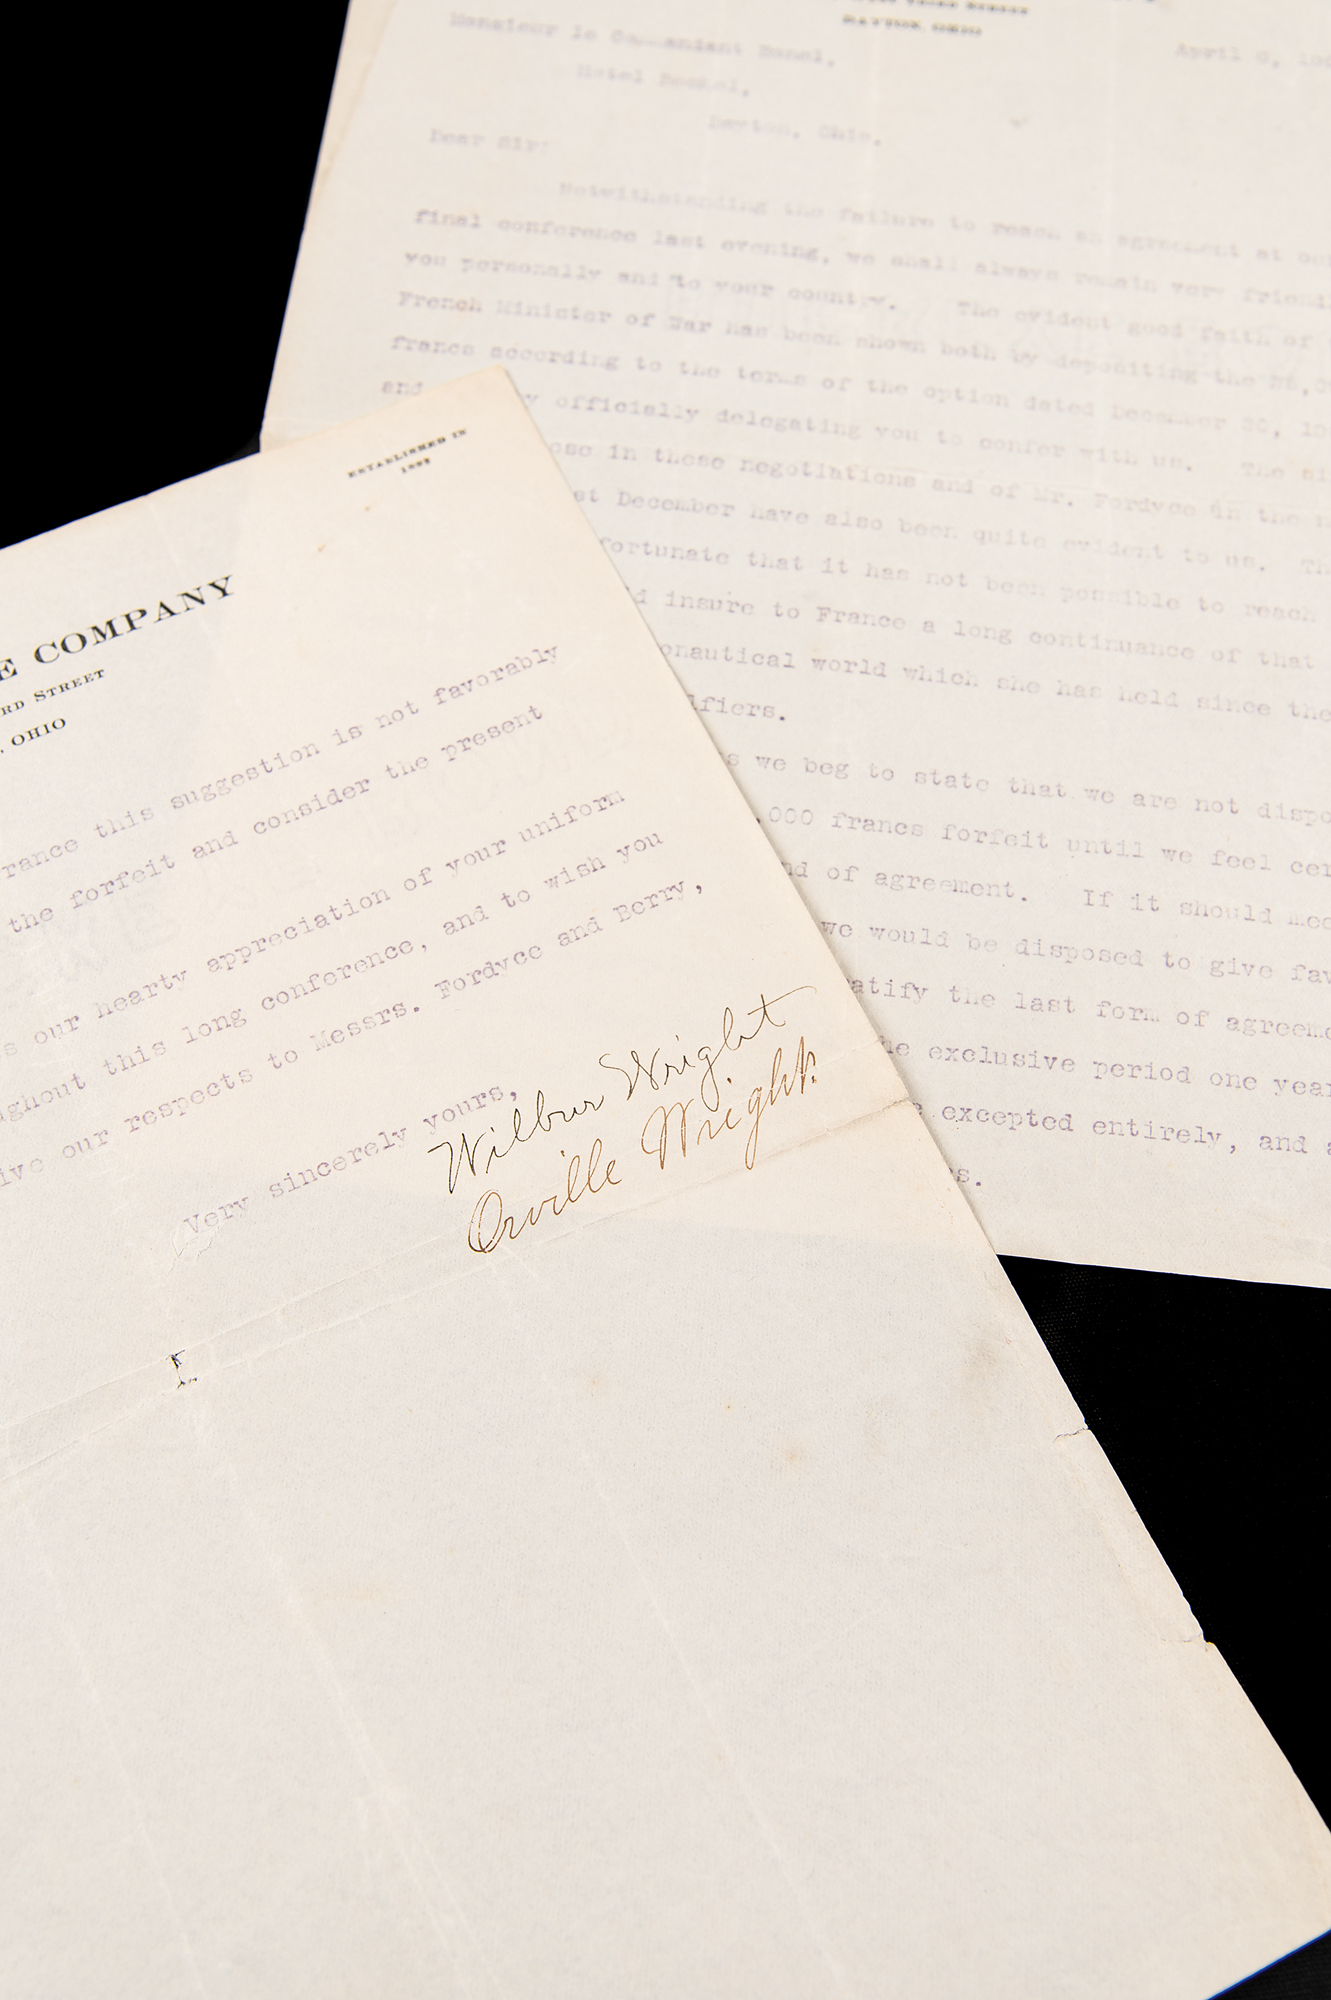 DAYTON, OHIO
April 6, 190
Monsieur le Commandant Bonel,
Hotel Beckel,
Dayton, Ohio.
Dear Sir:
Notwithstanding the failure to reach an agreement at our
final conference last evening, we shall always remain very friendl
you personally and to your country. The evident good faith of
French Minister of War has been shown both by depositing the
francs according to the terms of the option dated December 30, 190
and y officially delegating you to confer with us. The
ose in these negotiations and of Mr. Fordyce in the
st December have also been quite evident to us. Th
fortunate that it has not been possible to reach
d insure to France a long continuance of that
onautical world which she has held since the
lfiers.
s we beg to state that we are not dispo
,000 francs forfeit until we feel cer
nd of agreement. If it should mee
we would be disposed to give fav
atify the last form of agreeme
he exclusive period one year
e excepted entirely, and a
s.
ESTABLISHED IN
E COMPANY
RD STREET
, OHIO
rance this suggestion is not favorably
the forfeit and consider the present
s our hearty appreciation of your uniform
ughout this long conference, and to wish you
ive our respects to Messrs. Fordyce and Berry,
Very sincerely yours,
Wilbur Wright
Orville Wright.